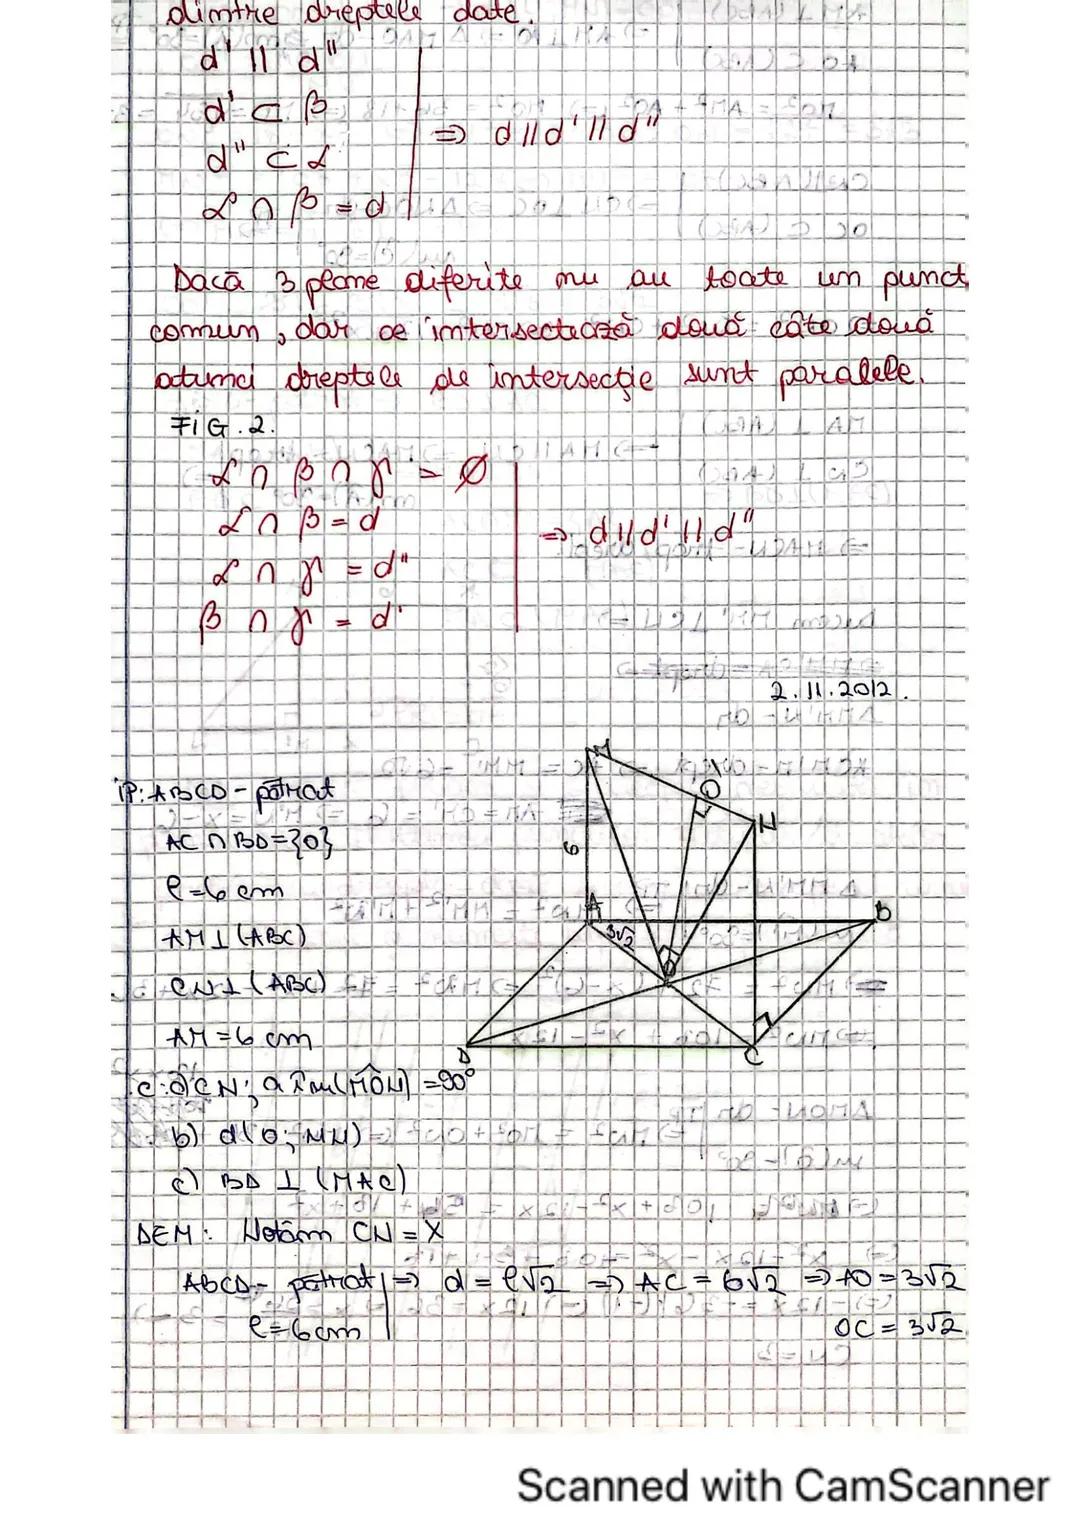 dintre dreptele date.
d' || d''
d' ⊂ β
d'' ⊂ α
α ∩ β = d
=> d || d' || d''
Dacă 3 plane diferite nu au toate un punct
comun, dar se intersectează două câte două
atunci dreptele de intersecție sunt paralele.
FIG. 2.
α ∩ β ∩ γ = ∅
α ∩ β = d
α ∩ γ = d''
β ∩ γ = d'
=> d || d' || d''
2.11.2012.
M
O'
N
6
A
B
3√2
O
D
C
iP: ABCD - pătrat
AC ∩ BD = {O}
l = 6 cm
AM ⊥ (ABC)
CN ⊥ (ABC)
AM = 6 cm
C: a) CN; a î m(MÔN) = 90°
b) d(O; MN)
c) BD ⊥ (MAC)
DEM: Notăm CN = X
ABCD - pătrat | => d = l√2 => AC = 6√2 => AO = 3√2
l = 6 cm
OC = 3√2
Scanned with CamScanner